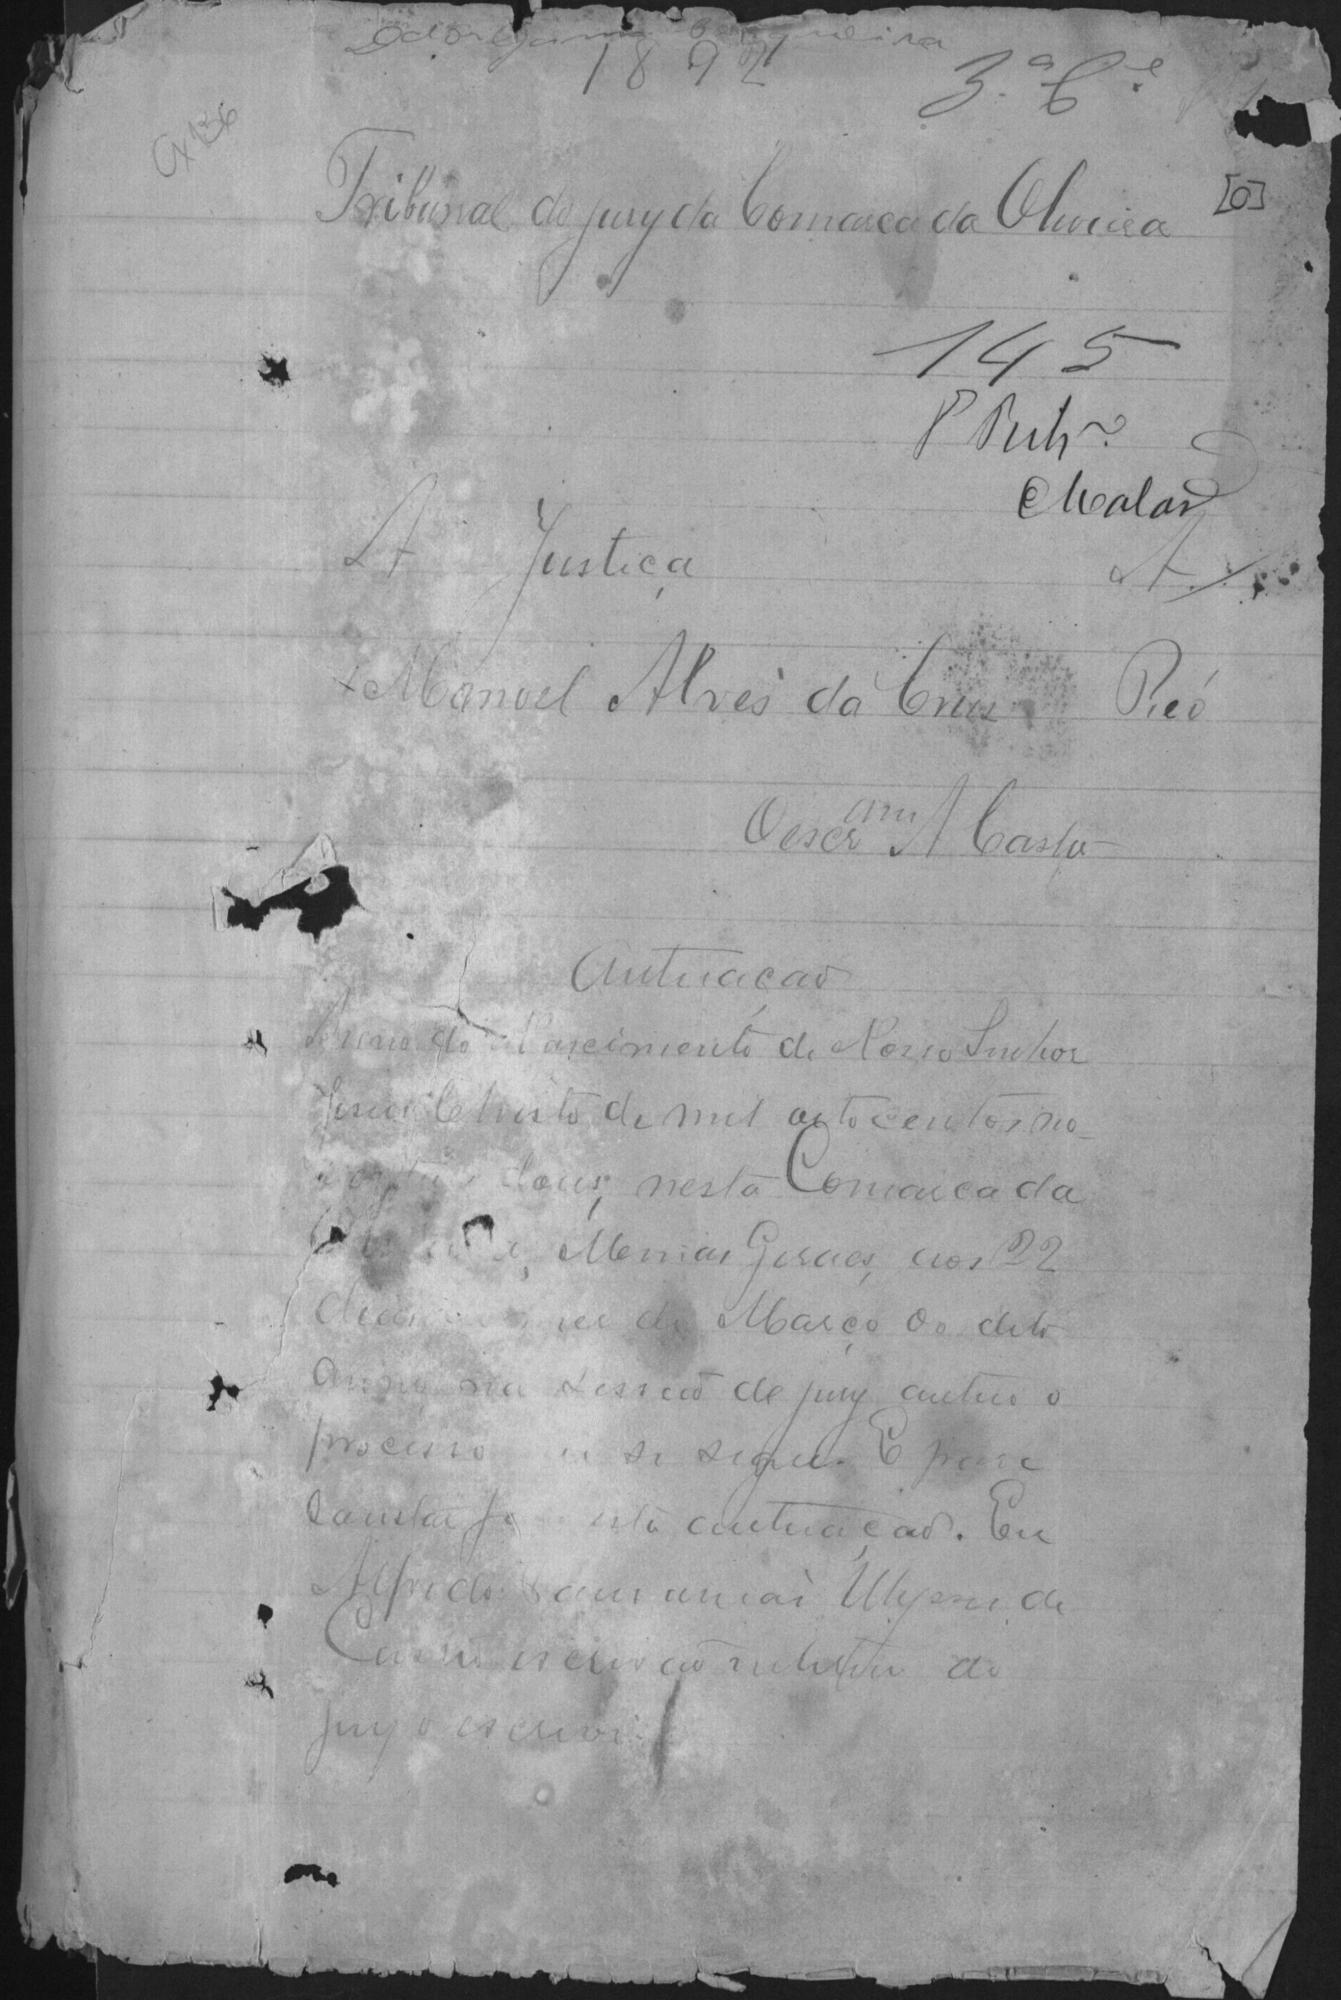 1892
3.ª C.e
Cx 136
Tribunal do jury da Comarca da Oliveira
[0]
145
Malas
A Justiça A.
Manoel Alves da Cruz Réo
O escr am A Castro
Autuação
Anno do Nascimento de Nosso Senhor
Jesus Christo de mil oitocentos no-
venta e dous, nesta Comarca da
Minas Geraes, aos 22
dias do mez de Março do dito
anno na sessão de jury autuo o
processo que se segue. E para
constar faço esta autuação. Eu
Alfredo Ulysses de
Castro escrivão do
jury o escrevi.